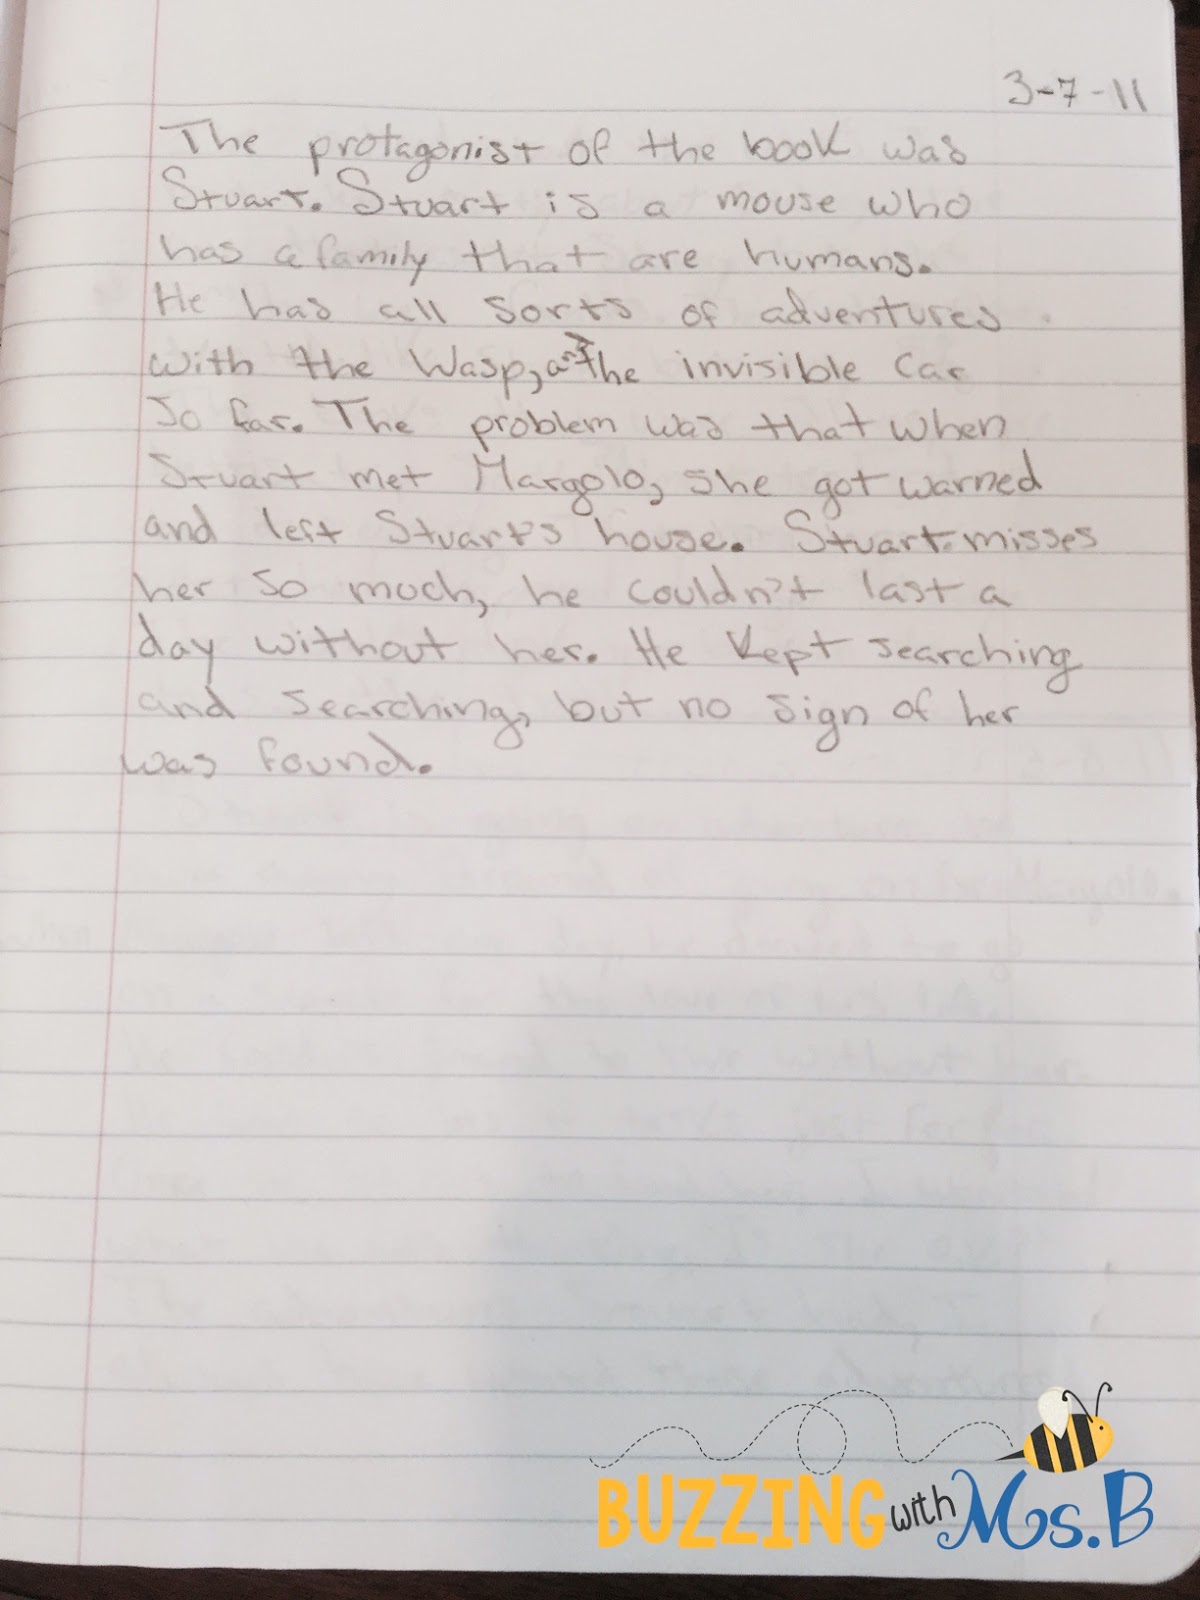 3-7-11
The protagonist of the book was
Stuart. Stuart is a mouse who
has a family that are humans.
He has all sorts of adventures
with the Wasp, and the invisible car
so far. The problem was that when
Stuart met Margolo, she got warned
and left Stuart's house. Stuart misses
her so much, he couldn't last a
day without her. He kept searching
and searching, but no sign of her
was found.
BUZZING with Ms. B